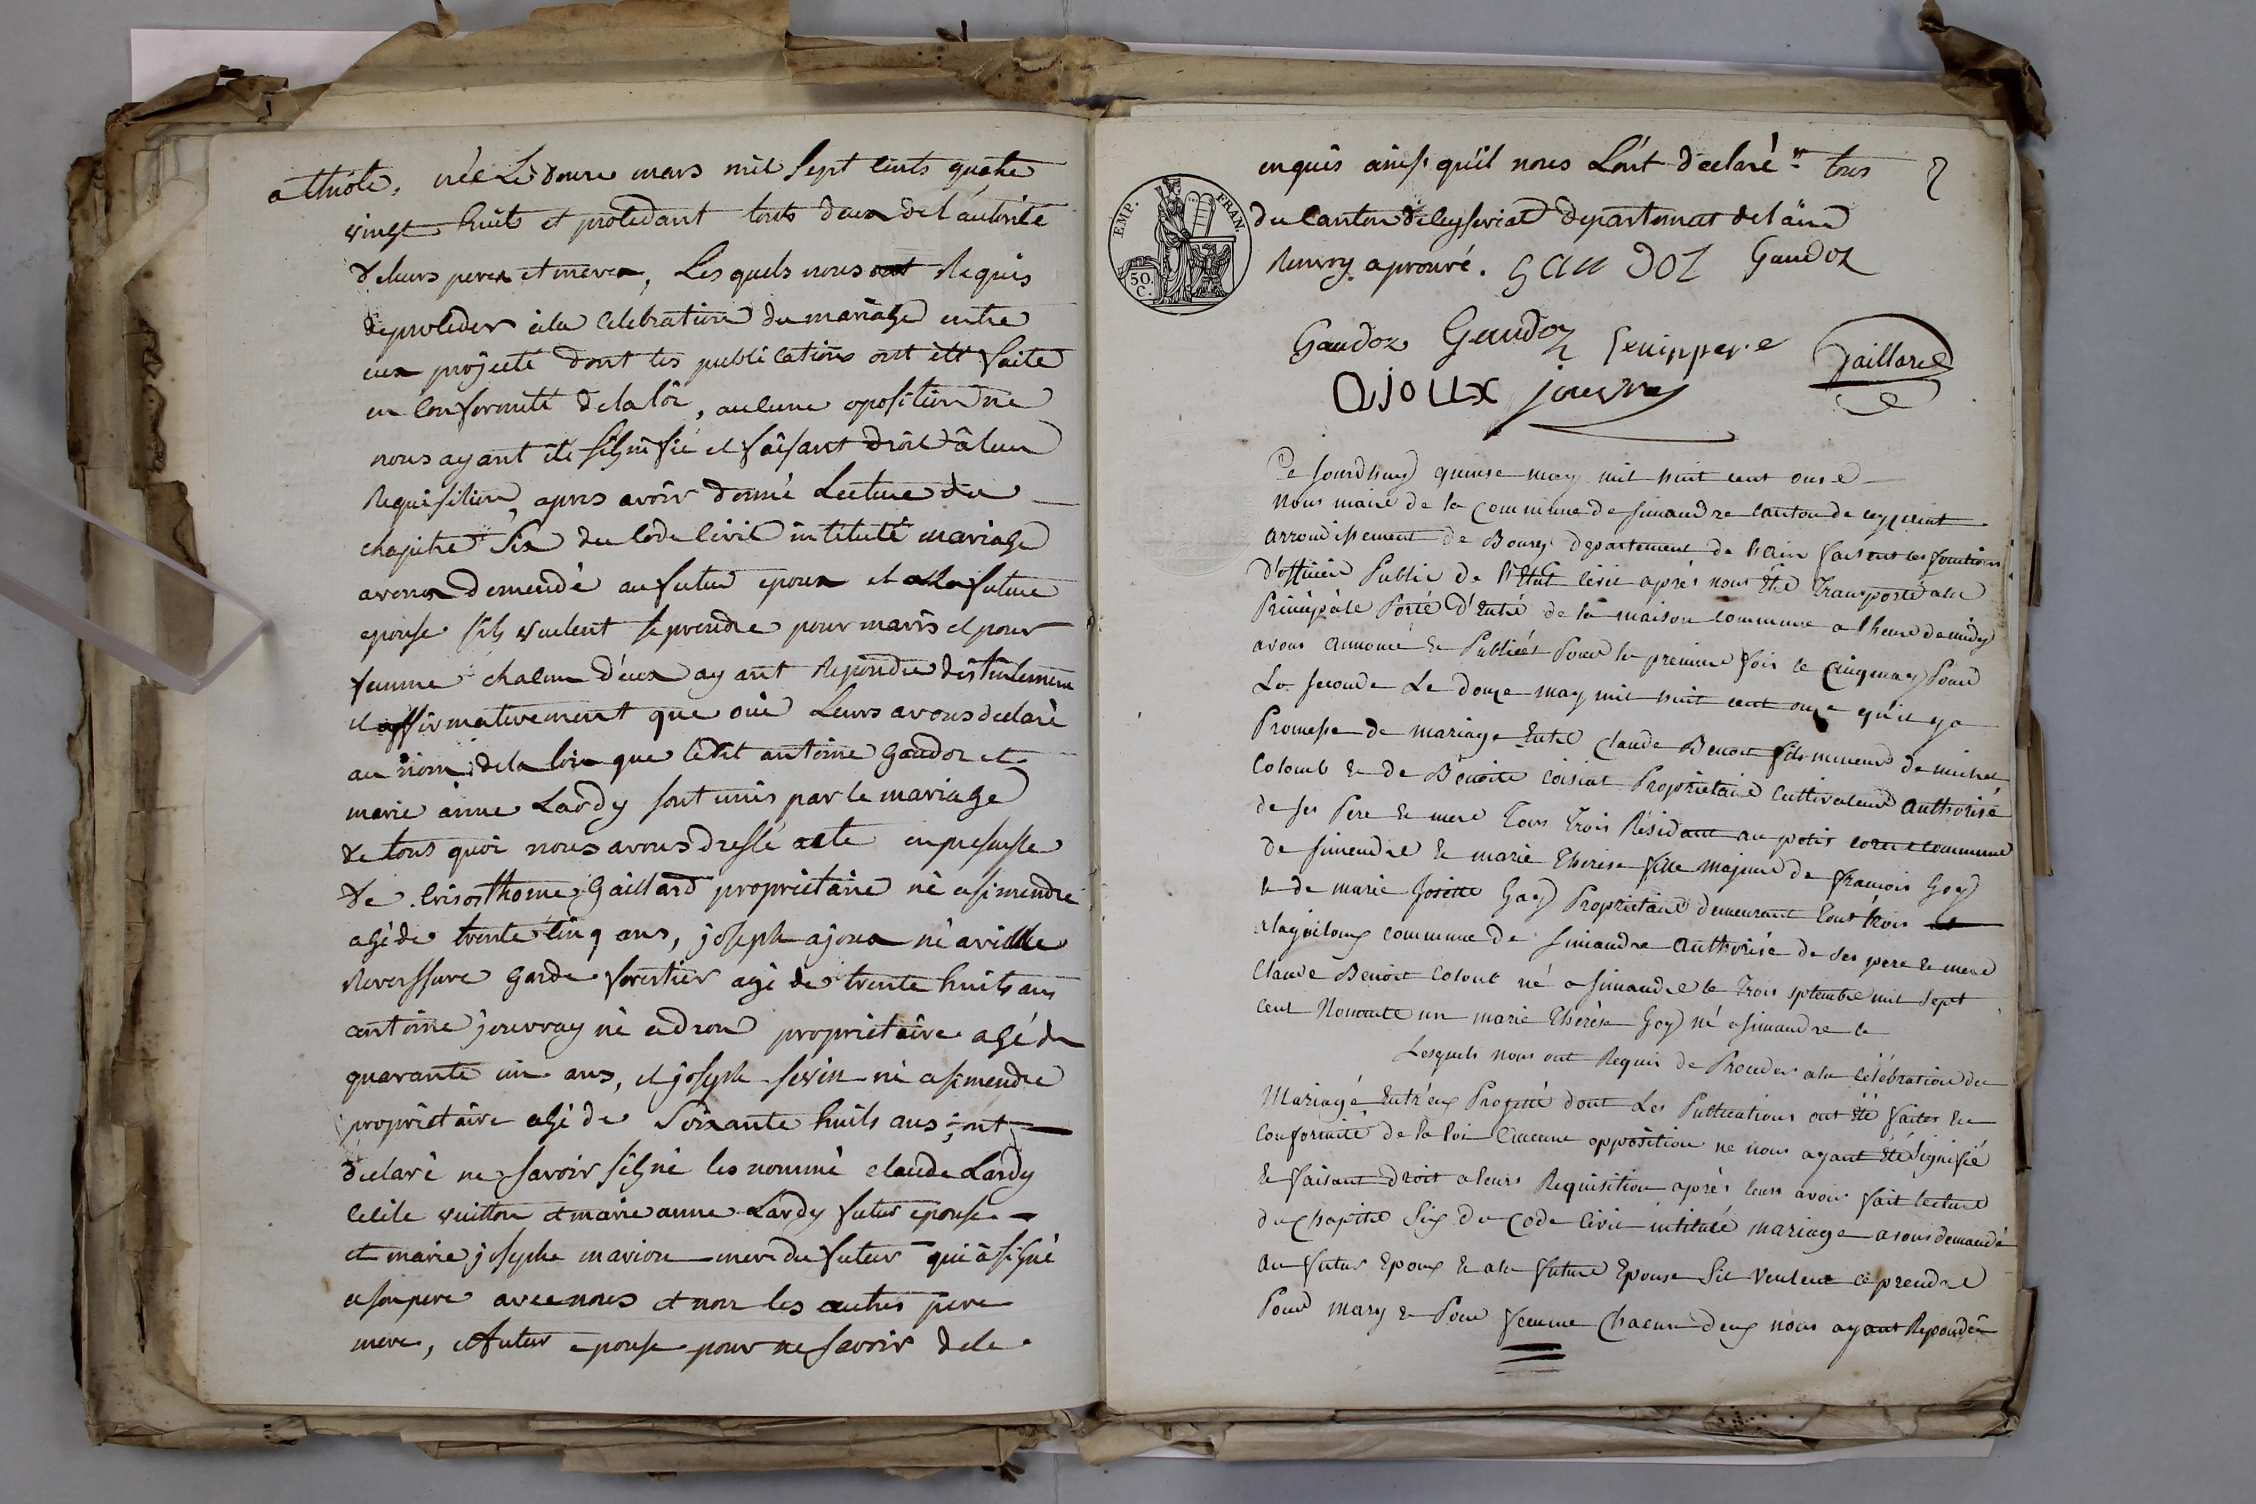 a thiole, née Le douze mars mil Sept Cents quatre
vingt huits et procedant touts deux del'autorité
de leurs peres et meres, Les quels nous ont Requis
de proceder à la Celebration du mariage entre
eux projeté dont les publications ont été faite
en Conformité de la loi, aucune oposition ne
nous ayant été Signifié et faisant droit à leur
Requisition, apres avoir donné Lecture du
chapitre Six du Code Civil intitulé mariage
avons demendé au futur epoux et a la future
epouse sils veulent se prendre pour maris et pour
femme chacun d'eux ayant Repondu
et affirmativement que oui Leurs avons declaré
au nom de la loi que ledit antoine Gaudoz et
marie anne Lardy sont unis par le mariage
de tous quoi nous avons dressé acte en presense
de Crisosthome Gaillard proprietaire né a simendre
agé de trente Cinq ans, joseph ajoux né a ville
Reverssure Garde forestier agé de trente huits ans
antoine jouvray né a drom proprietaire agé de
quarante un ans, et joseph né a simendre
propriètaire agé de Soixante huits ans; ont
declaré ne savoir signé les nommé claude Lardy
Cecile vuitton et marie anne Lardy futur epouse
et marie josephe marion mere du futur qui a signé
a son pere avec nous et non les autres pere
mere, et futur epouse pour ne savoir de ce
enquis ainsi qu'il nous L'ont déclaré tous
du Canton de Ceyseriat departement de l'ain
aprouvé. GAUDOZ Gaudoz
Gaudoz Gaudoz Gaillard
AJOUX jouvray
EMP. FRAN.
50. C.
Ce jourdhuy quinse may mil huit cent onse
Nous maire de la Commune de simandre canton de ceyzeriat
Arrondissement de Bourg departement de l'ain faisant les fonctions
D'officier Public de l'Etat Civil après nous été Transporté a la
Principale Porte d'Entré de la maison Commune a l'heure de midy
avons annoncé & Publiées Pour la premiere fois le Cinq may Pour
La seconde Le douze may mil huit cent onze qu'il y a
Promesse de Mariage Entre Claude Benoit fils mineur de michel
Colomb & de Benoite Coisiat Proprietaire Cultivateur Authorisé
de ses Pere & mere Tous Trois Résidant au petit Commune
de simendre & marie Therese fille Majeure de francois Goy
& de marie Josette Gay Proprietaire demeurant tous trois
commune de simandre Authorisée de ses pere & mere
Claude Benoit Colomb né a simandre le Trois septembre mil sept
cent Nonante un marie Thérèse Goy né a simandre le
Lesquels nous ont Requis de Proceder a la Célébration du
Mariage Entr'eux Projetté dont Les Publications ont été faites en
Conformité de la loi aucune opposition ne nous ayant été signifié
& faisant Droit a leurs Requisition après leurs avoir fait lecture
du Chapitre Six du Code Civil intitulé Mariage avons demandé
Au futur Epoux & a la future Epouse Sil veulent ce prendre
Pour Mary & Pour femme Chacun deux nous ayant Repondu